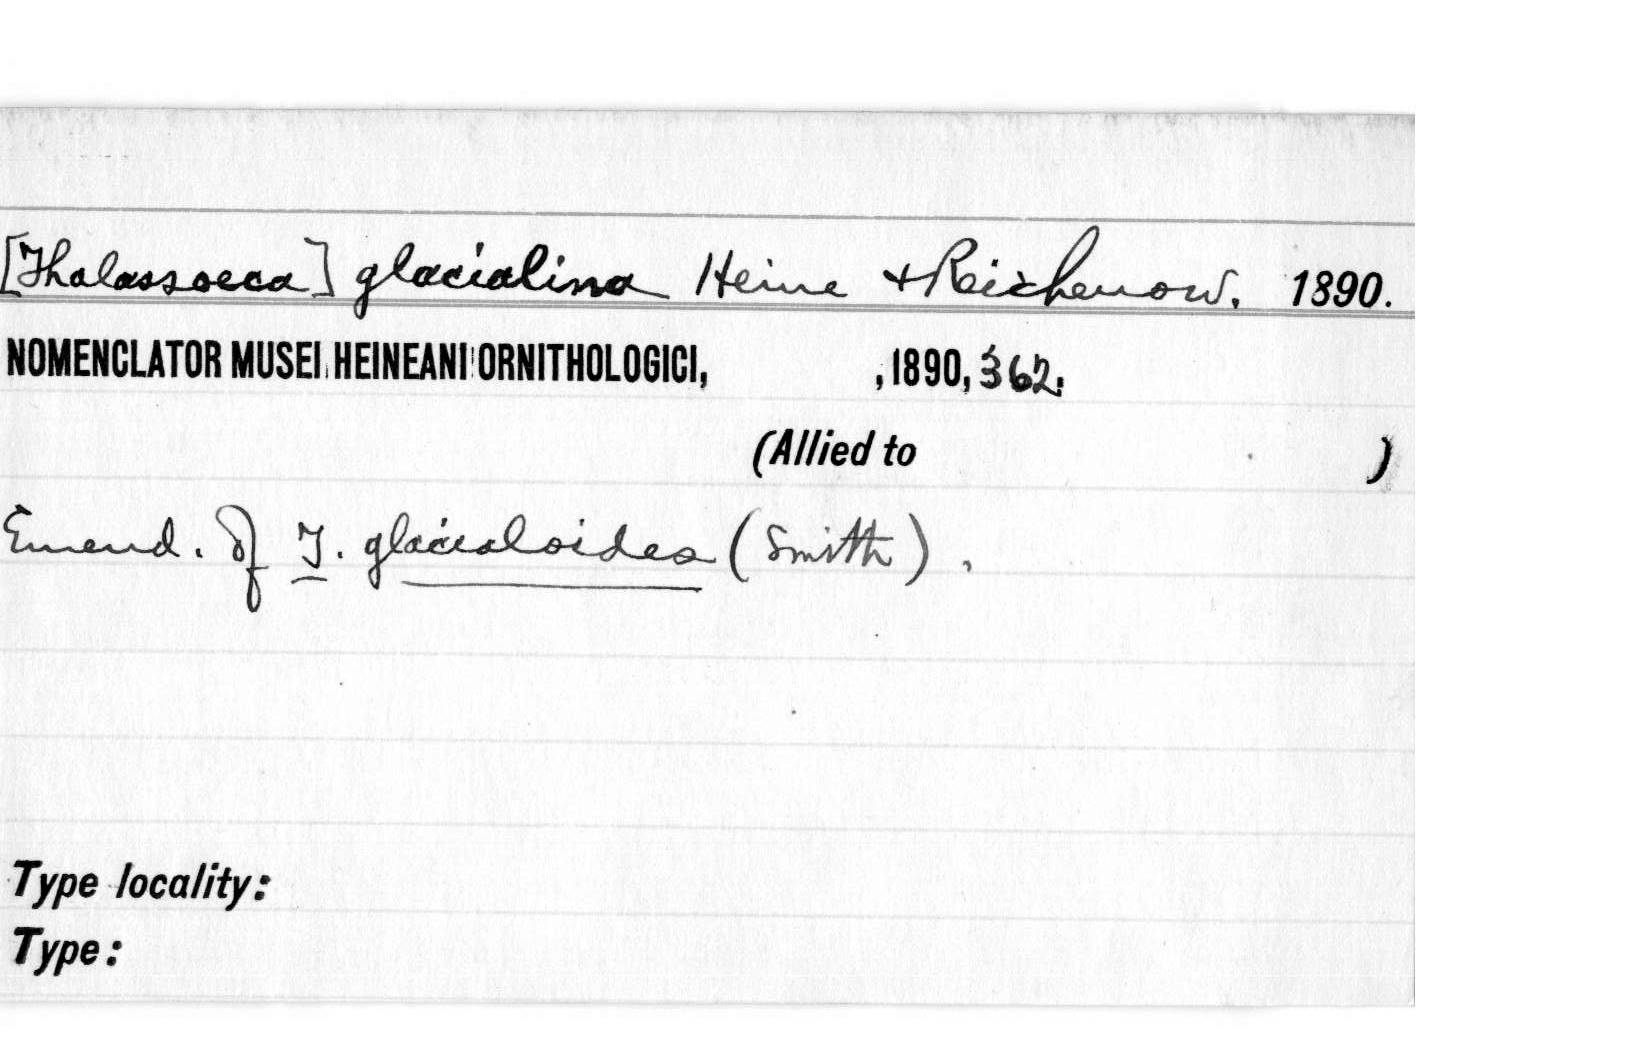 [Thalassoeca] glacialina Heine + Reichenow. 1890.
NOMENCLATOR MUSEI HEINEANI ORNITHOLOGICI, , 1890, 362.
(Allied to )
Emend. of T. glacialoides (Smith).
Type locality:
Type: